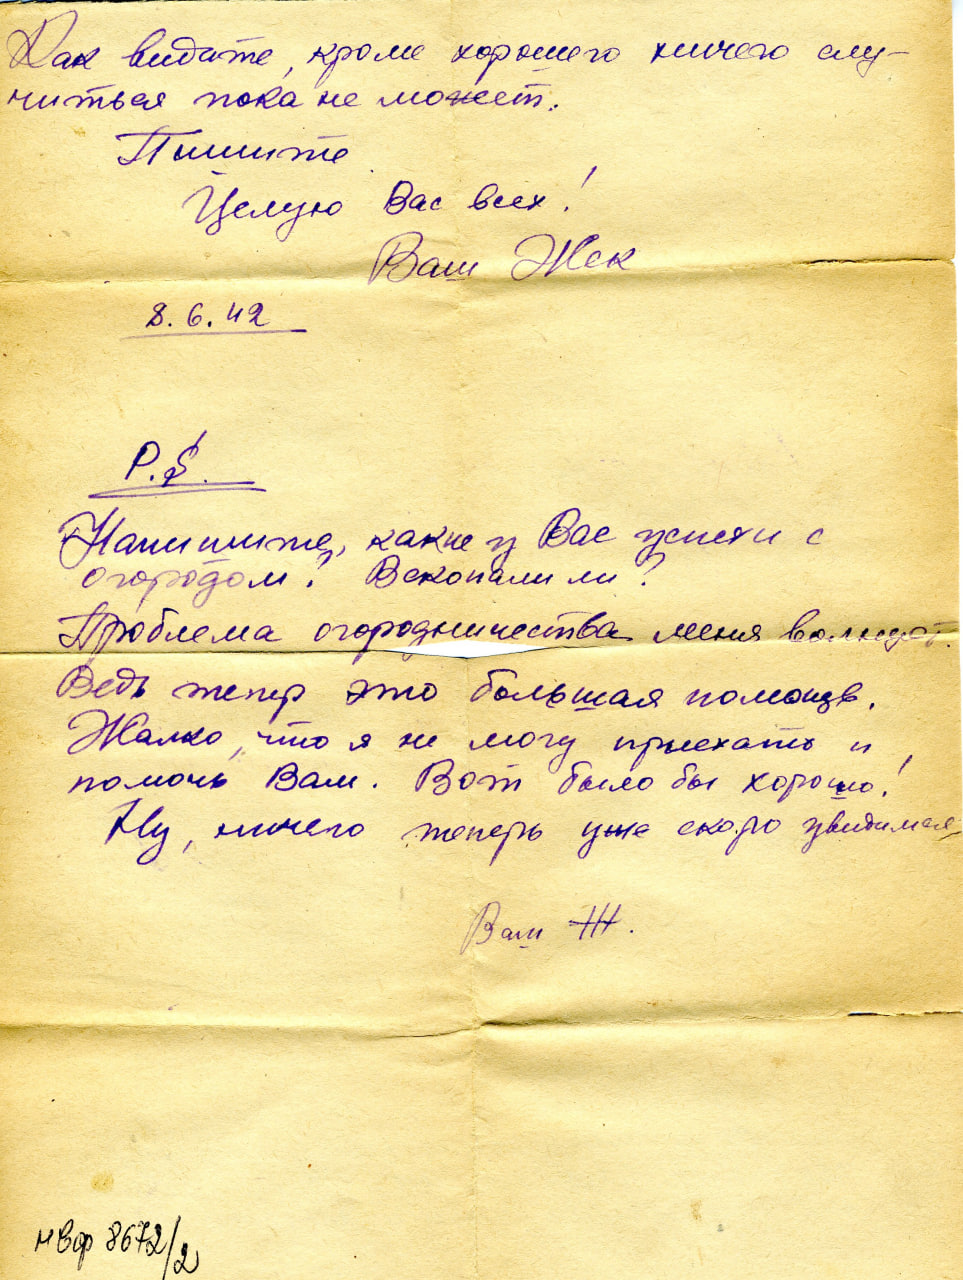 Как видите, кроме хорошего ничего слу-
читься пока не может.
Пишите
Целую Вас всех!
Ваш Жек
8.6.42
P.S.
Напишите, какие у Вас успехи с
огородом? Вскопали ли?
Проблема огородничества меня волнует.
Ведь тепер это большая помощь.
Жалко, что я не могу приехать и
помочь Вам. Вот было бы хорошо!
Ну, ничего теперь уже скоро увидимся
Ваш Ж.
нвф 8672/2